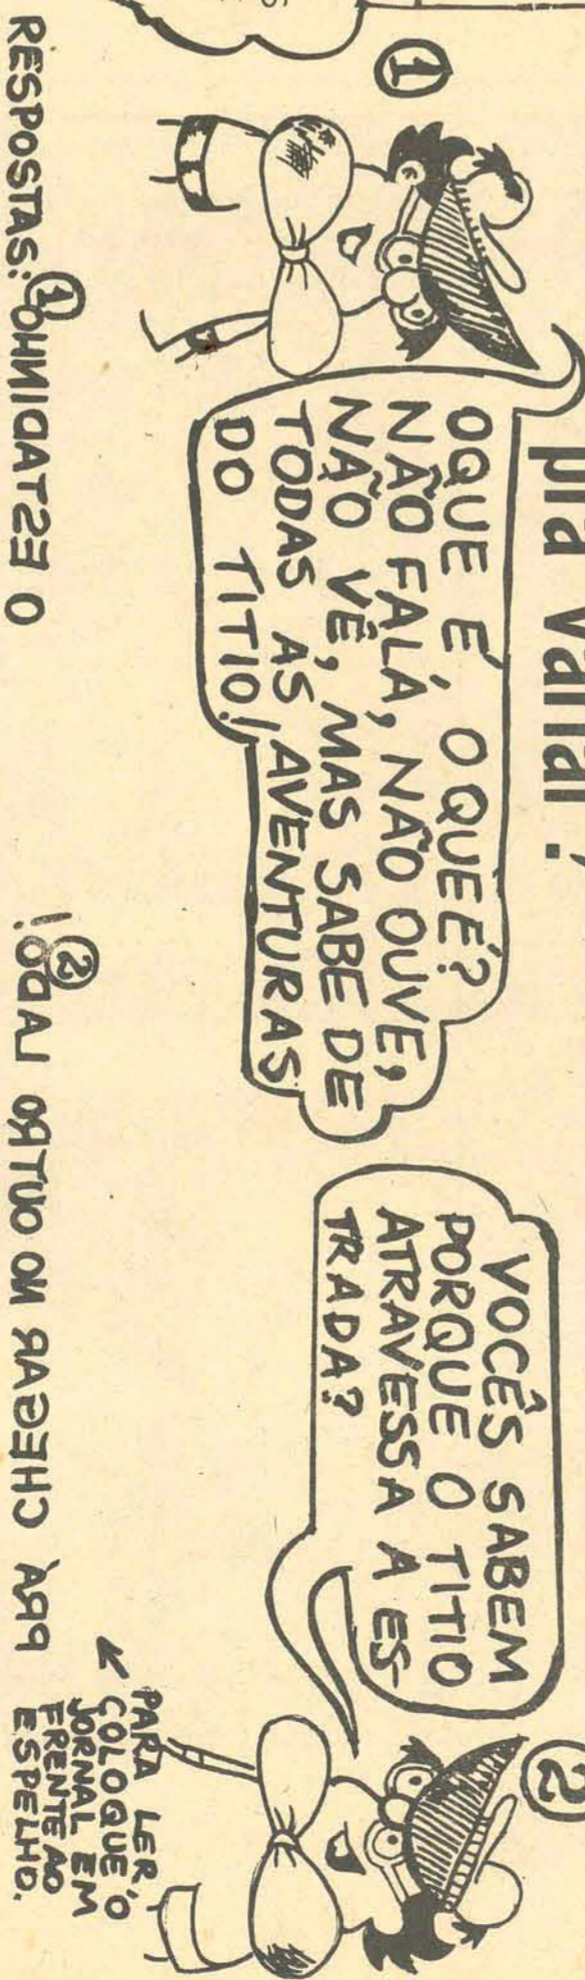 pra variar?
1
OQUE É, OQUEÉ?
NÃO FALA, NÃO OUVE,
NÃO VÊ, MAS SABE DE
TODAS AS AVENTURAS
DO TITIO!
2
VOCÊS SABEM
PORQUE O TITIO
ATRAVESSA A ES-
TRADA?
RESPOSTAS: 1 O ESTADINHO 2 PRÀ CHEGAR NO OUTRO LADO!
PARA LER
COLOQUE O
JORNAL EM
FRENTE AO
ESPELHO.